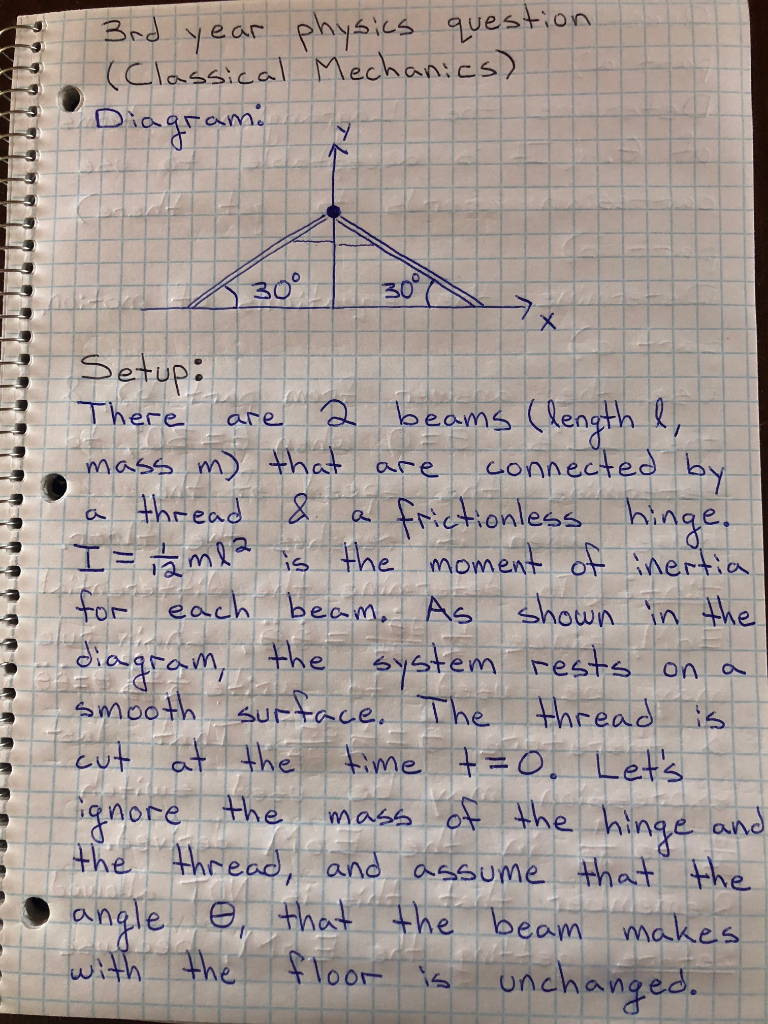 3rd year physics question
(Classical Mechanics)
Diagram:
y
30° 30°
x
Setup:
There are 2 beams (length l,
mass m) that are connected by
a thread & a frictionless hinge.
I = 1/12 ml² is the moment of inertia
for each beam. As shown in the
diagram, the system rests on a
smooth surface. The thread is
cut at the time t=0. Let's
ignore the mass of the hinge and
the thread, and assume that the
angle θ, that the beam makes
with the floor is unchanged.